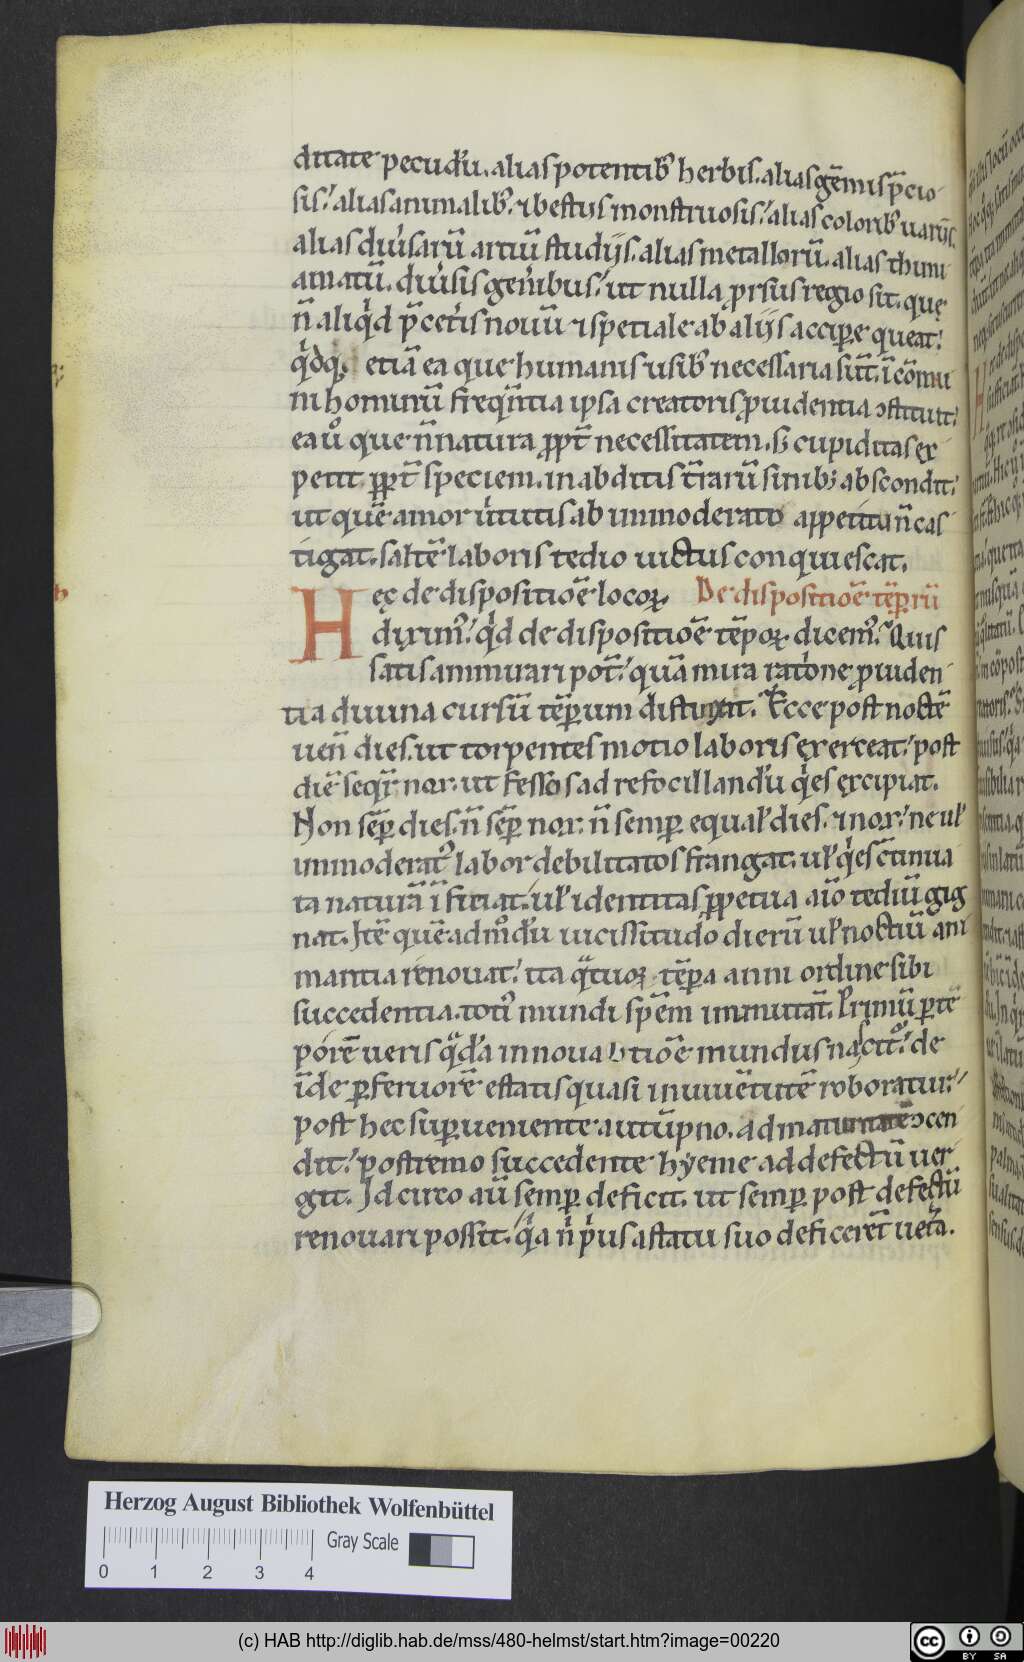 ditate pecudũ. alias potentib; herbis. alias gẽmis p̃cio
sis. alias animalib;. ⁊ bestijs monstruosis. alias colorib; uarijs.
alias diu̾sarũ artiũ studijs. alias metallorũ. alias thimi
amatũ. diu̾sis gen̾ibus. ut nulla ꝓrsus regio sit. quę
ñ aliqͥd p̃ cet̾is nouũ ⁊ spetiale ab alijs accipe̾ queat.
qͥdq; etiã ea que humanis usib; necessaria sũt. ĩ cõmu
ni hominũ freqũtia ipsa creatoris ꝓuidentia ↄstituit.
ea uͦ que ñ natura ꝓpt̃ necessitatem. ſꝫ cupiditas ex
petit ꝓpt̃ speciem. in abditis t̃rarũ sinib; abscondit.
ut quẽ amor uͥtutis ab immoderato appetitu ñ cas
tigat. saltẽ laboris tedio uictus conquiescat.
Hęc de dispositiõe locoꝝ De dispositiõe tẽꝑrũ
diximꝰ. qͥd de dispositiõe tẽpoꝝ dicemꝰ. Quis
satis ammirari pot̃. quã mira rat̾one ꝓuiden
tia diuina cursũ tẽꝑum distinxit. Ecce post noctẽ
uẽn dies. ut torpentes motio laboris exerceat. post
diẽ seqͥt̃ nox. ut fessos ad refocillandũ qͥes excipiat.
Non sẽꝑ dies. ñ sẽꝑ nox. ñ semꝑ equal̾ dies. ⁊ nox. ne ul̾
immoderatꝰ labor debilitatos frangat. ul̾ qͥes ↄtinua
ta naturã ĩficiat. ul̾ identitas ꝑpetua aĩo tediũ gig
nat. Itẽ quẽadmͦdũ uicissitudo dierũ ul̾ noctiũ ani
mantia renouat. ita qͣtuoꝝ tẽꝑa anni ordine sibi
succedentia. totiꝰ mundi spẽm immutãt. Primũ ꝑ tẽ
porẽ ueris qͣdã innouatiõe mundus nascit̾. de
ĩde ꝑ feruorẽ estatis quasi in iuuẽtutẽ roboratur.
post hec suꝑueniente autũpno. ad maturitatẽ ↄcen
dit. postremo succedente hyeme ad defectũ uer
git. Idcirco aũ semꝑ deficit. ut semꝑ post defectũ
renouari possit. qͥa nͥ pͥus a statu suo deficerẽt uetͣa.
Herzog August Bibliothek Wolfenbüttel
Gray Scale
0 1 2 3 4
(c) HAB http://diglib.hab.de/mss/480-helmst/start.htm?image=00220
cc BY SA